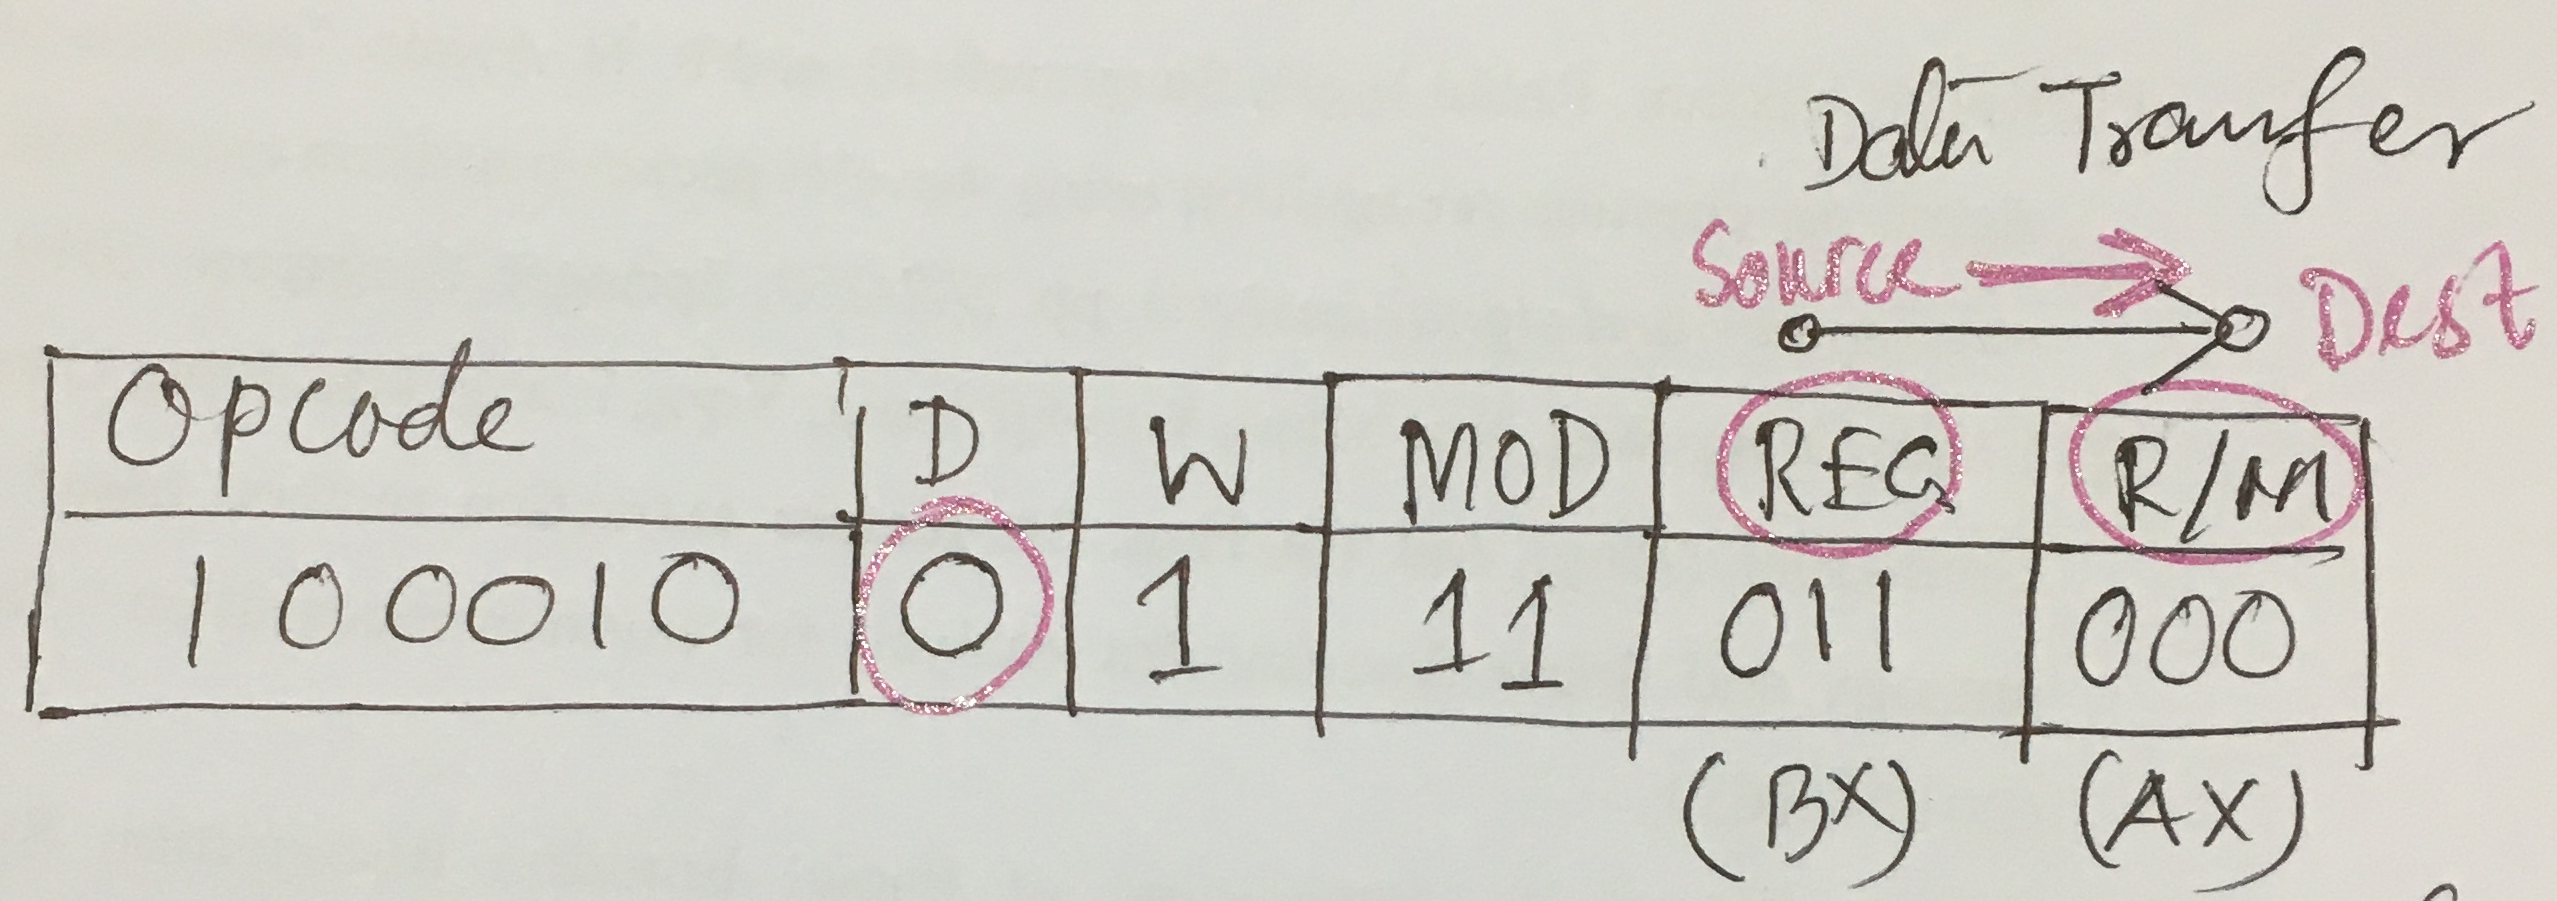 Data Transfer
Source → Dest
Opcode D W MOD REG R/M
100010 0 1 11 011 000
(BX) (AX)